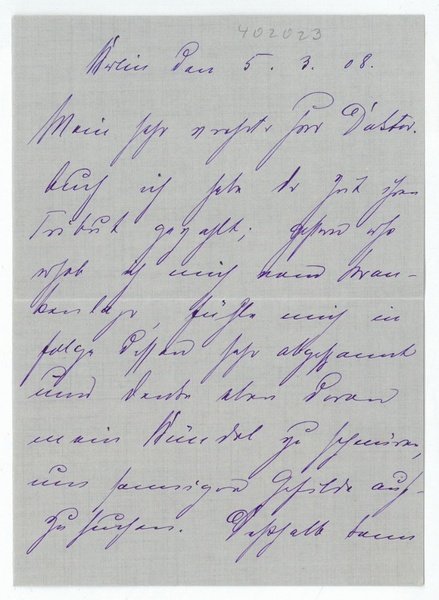 402023
Berlin den 5. 3. 08.
Mein sehr verehrter Herr Doktor.
Auch ich habe der Zeit ihren
Tribut gezahlt; gestern
erhob ich mich vom Kran-
kenlager, fühle mich in
folge dessen sehr abgespannt
und denke eben daran
mein Bündel zu schnüren,
um sonnigere Gefilde auf-
zusuchen. Deßhalb kann